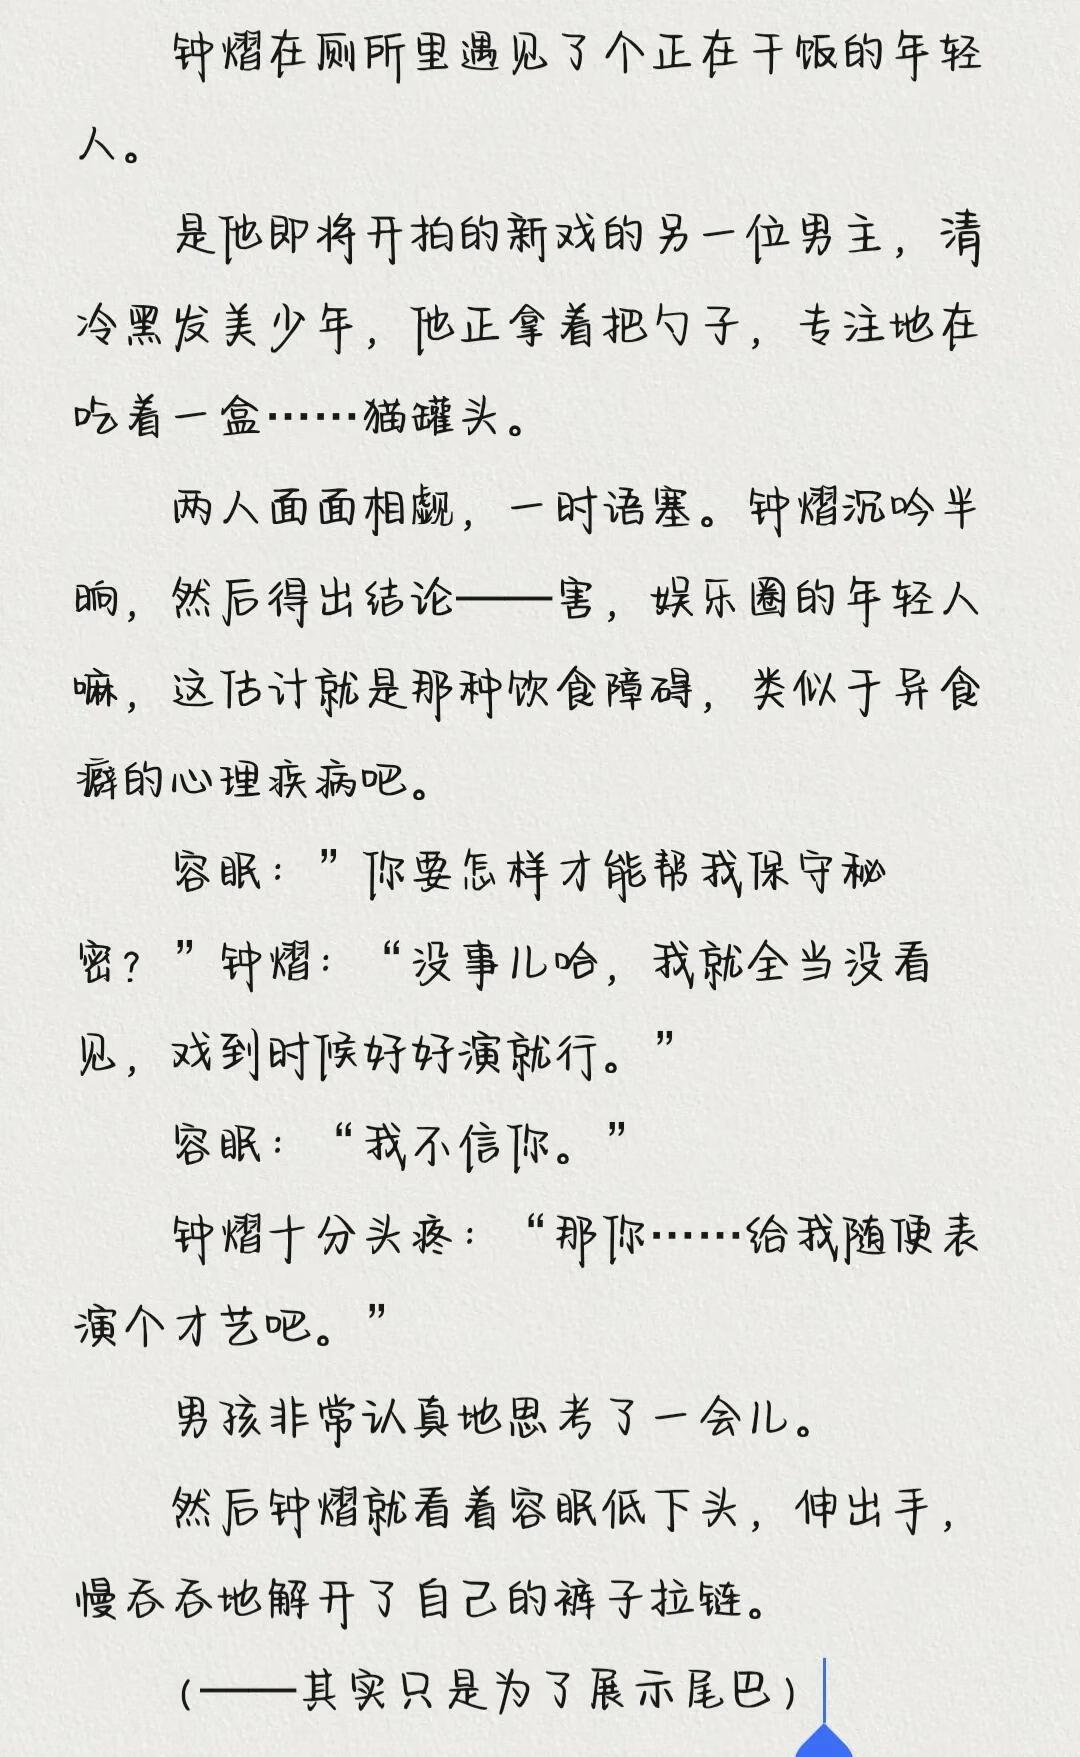 钟熠在厕所里遇见了个正在干饭的年轻
人。
是他即将开拍的新戏的另一位男主，清
冷黑发美少年，他正拿着把勺子，专注地在
吃着一盒……猫罐头。
两人面面相觑，一时语塞。钟熠沉吟半
晌，然后得出结论——害，娱乐圈的年轻人
嘛，这估计就是那种饮食障碍，类似于异食
癖的心理疾病吧。
容眠：”你要怎样才能帮我保守秘
密？”钟熠：“没事儿哈，我就全当没看
见，戏到时候好好演就行。”
容眠：“我不信你。”
钟熠十分头疼：“那你……给我随便表
演个才艺吧。”
男孩非常认真地思考了一会儿。
然后钟熠就看着容眠低下头，伸出手，
慢吞吞地解开了自己的裤子拉链。
（——其实只是为了展示尾巴）